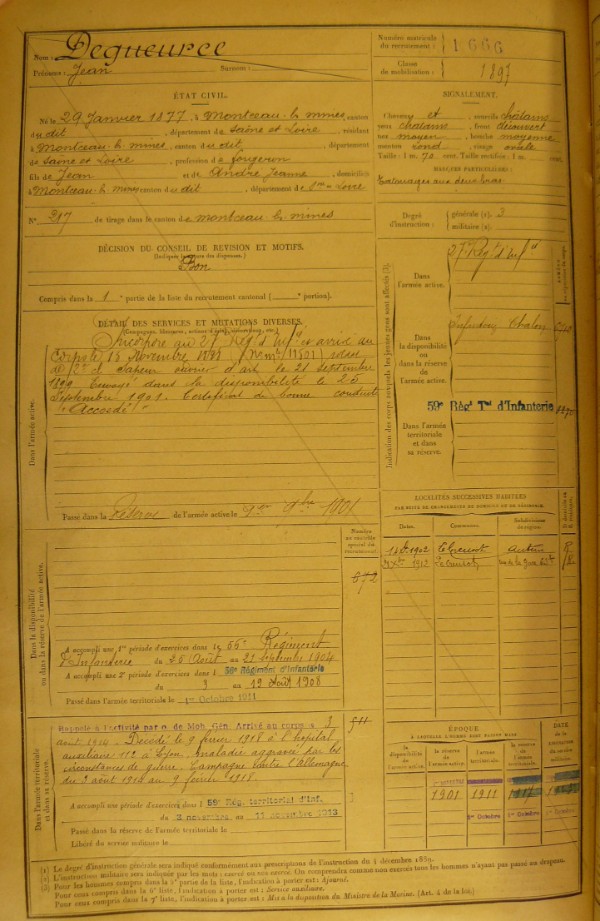 Nom : Degueurce
Prénoms : Jean Surnoms :
Numéro matricule du recrutement : 1666
Classe de mobilisation : 1897
ÉTAT CIVIL.
Né le 29 Janvier 1877, à Montceau-les-mines, canton
du dit, département de Saône et Loire, résidant
à Montceau-les-mines, canton du dit, département
de Saône et Loire, profession de forgeron
fils de Jean et de André Jeanne, domiciliés
à Montceau-les-mines, canton du dit, département de
N° 317 de tirage dans le canton de Montceau les mines
SIGNALEMENT.
Cheveux et sourcils châtains
yeux châtains, front découvert
nez moyen, bouche moyenne
menton rond, visage ovale
Taille : 1 m. 70 cent. Taille rectifiée : 1 m. cent.
MARQUES PARTICULIÈRES :
Tatouages aux deux bras
Degré d'instruction : générale (1). 3
militaire (2).
DÉCISION DU CONSEIL DE REVISION ET MOTIFS.
Bon
Compris dans la 1e partie de la liste du recrutement cantonal ( e portion).
DÉTAIL DES SERVICES ET MUTATIONS DIVERSES.
Incorporé au 27e Régt d'Infie arrivé au
Corps le 15 Novembre 1898, soldat
de 2e cl. Sapeur ouvrier d'art le 21 septembre
1899. Envoyé dans la disponibilité le 20
Septembre 1901. Certificat de bonne conduite
"Accordé"
Passé dans la Réserve de l'armée active le 1901
Dans l'armée active.
Indication des corps auxquels les jeunes gens sont affectés (3).
Dans l'armée active.
27e Régt d'Infie
Dans la disponibilité ou dans la réserve de l'armée active.
Chalon
59e Régt Tal d'Infanterie
Dans l'armée territoriale et dans sa réserve.
LOCALITÉS SUCCESSIVES HABITÉES
Dates. Communes. Subdivisions de région.
1902 Le Creusot Autun
1912 Le Creusot
672
Dans la disponibilité ou dans la réserve de l'armée active.
A accompli une 1re période d'exercices dans le 56e Régiment
d'Infanterie du 25 Août au 21 Septembre 1904
A accompli une 2e période d'exercices dans le 56e Régiment d'Infanterie
du 3 au 19 Août 1908
Passé dans l'armée territoriale le 1er Octobre 1911
Dans l'armée territoriale et dans sa réserve.
Rappelé à l'activité par o. de Mob. Gén. Arrivé au corps le 3
août 1914. Décédé le 9 février 1918 à l'hôpital
auxiliaire 112 à Lyon. Maladie aggravée par les
circonstances de guerre. Campagne contre l'Allemagne
du 3 août 1914 au 9 février 1918.
A accompli une période d'exercices dans le 59e Rég. territorial d'Inf.
du novembre au novembre 1913
Passé dans la réserve de l'armée territoriale le
Libéré du service militaire le
ÉPOQUE
À LAQUELLE L'HOMME DOIT PASSER DANS
la disponibilité de l'armée active. la réserve de l'armée active. l'armée territoriale. la réserve de l'armée territoriale.
DATE de la libération du service militaire.
1901 1911
1er Octobre 1er Octobre
(1) Le degré d'instruction générale sera indiqué conformément aux prescriptions de l'instruction du 4 décembre 1889.
(2) L'instruction militaire sera indiquée par les mots : exercé ou non exercé. On comprendra comme non exercés tous les hommes n'ayant pas passé au drapeau.
(3) Pour les hommes compris dans la 4e partie de la liste, l'indication à porter est : Ajourné.
Pour ceux compris dans la 6e liste, l'indication à porter est : Service auxiliaire.
Pour ceux compris dans la 7e liste, l'indication à porter est : Mis à la disposition du Ministre de la Marine. (Art. 4 de la loi.)